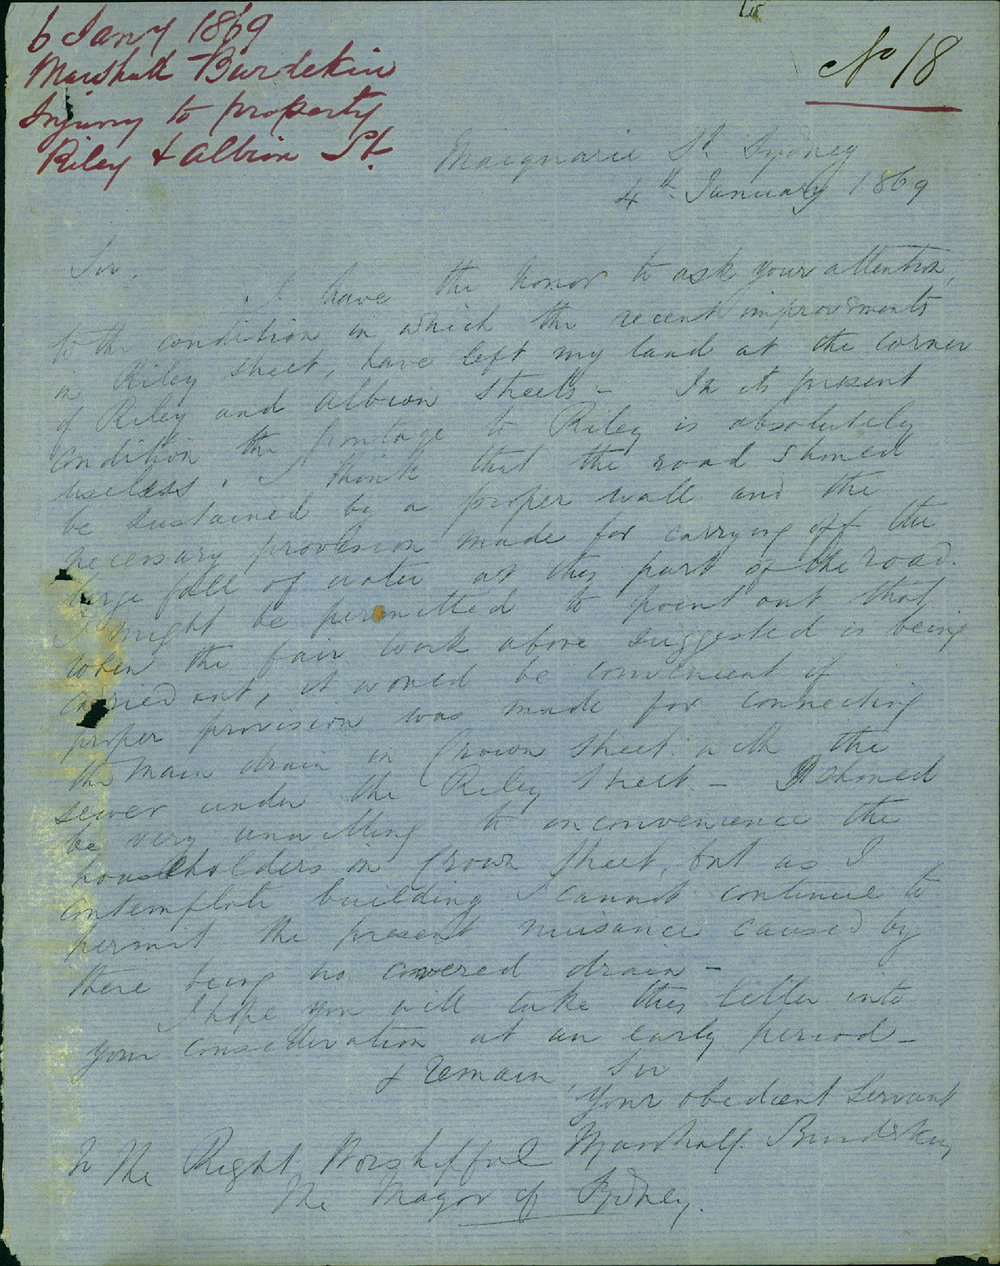 6 Jany 1869
Marshall Burdekin
Injury to property
Riley & Albion St.
No 18
Macquarie St. Sydney
4th January 1869
Sir,
I have the honor to ask your attention,
to the condition in which the recent improvements
in Riley Street, have left my land at the corner
of Riley and Albion Streets - In its present
condition the frontage to Riley is absolutely
useless. I think that the road should
be sustained by a proper wall and the
necessary provision made for carrying off the
large fall of water at this part of the road.
I might be permitted to point out that
when the fair work above suggested is being
carried out, it would be convenient if
proper provision was made for connecting
the main drain in Crown Street with the
sewer under the Riley Street - I should
be very unwilling to inconvenience the
householders in Crown Street, but as I
contemplate building I cannot continue to
permit the present nuisance caused by
there being no covered drain -
I hope you will take this letter into
your consideration at an early period -
& remain, Sir
Your obedient Servant
Marshall Burdekin
To The Right Worshipful
The Mayor of Sydney.